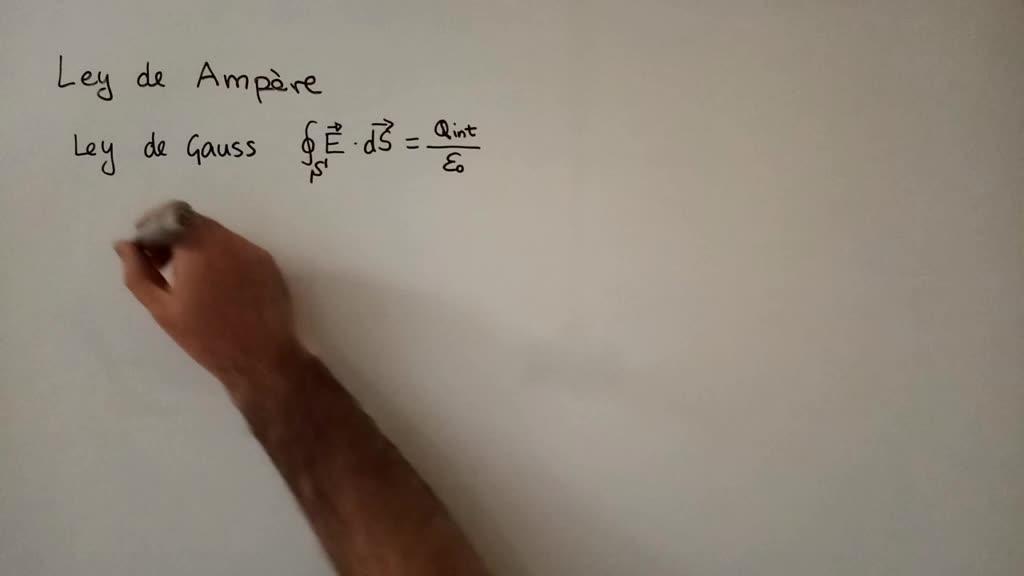 Ley de Ampère
Ley de Gauss ∮_S E⃗ · dS⃗ = Qint/ε₀